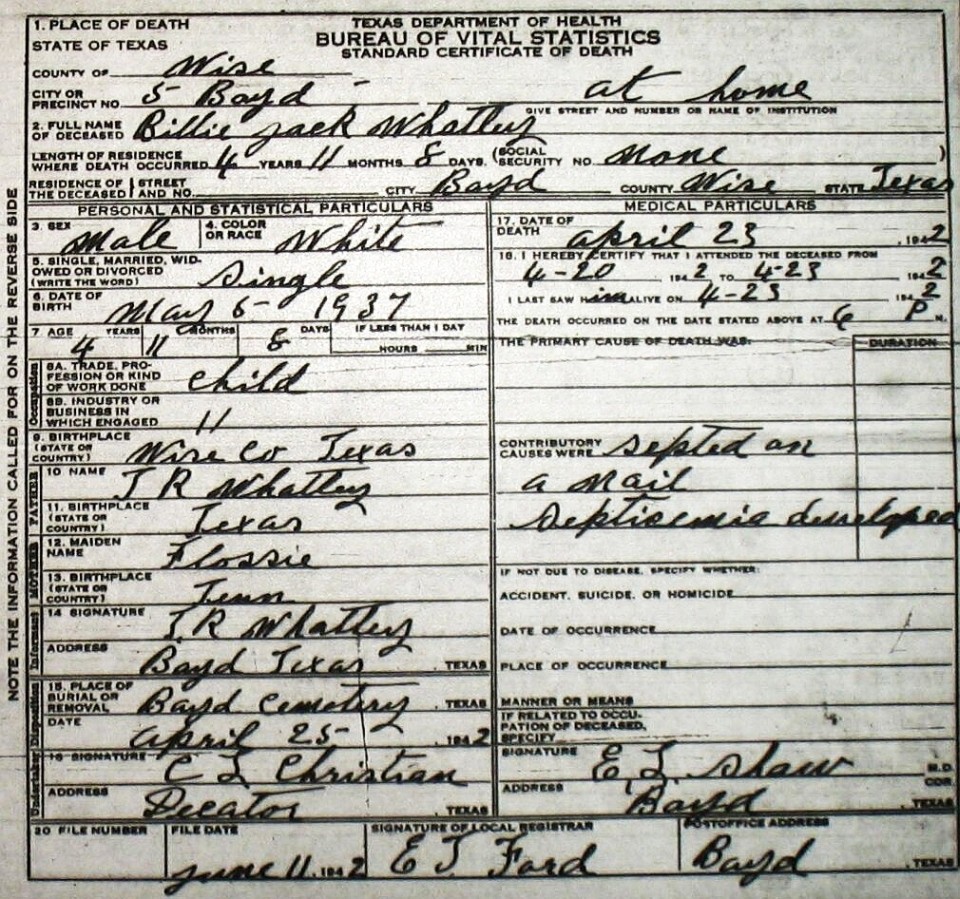 TEXAS DEPARTMENT OF HEALTH
BUREAU OF VITAL STATISTICS
STANDARD CERTIFICATE OF DEATH
1. PLACE OF DEATH
STATE OF TEXAS
COUNTY OF Wise
CITY OR PRECINCT NO. 5 Boyd at home
GIVE STREET AND NUMBER OR NAME OF INSTITUTION
2. FULL NAME OF DECEASED Billie Jack Whatley
LENGTH OF RESIDENCE WHERE DEATH OCCURRED 4 YEARS 11 MONTHS 8 DAYS. (SOCIAL SECURITY NO. none )
RESIDENCE OF THE DECEASED STREET AND NO. CITY Boyd COUNTY Wise STATE Texas
NOTE THE INFORMATION CALLED FOR ON THE REVERSE SIDE
PERSONAL AND STATISTICAL PARTICULARS
3. SEX Male 4. COLOR OR RACE White
5. SINGLE, MARRIED, WIDOWED OR DIVORCED (WRITE THE WORD) Single
6. DATE OF BIRTH May 5- 1937
7 AGE YEARS MONTHS DAYS IF LESS THAN 1 DAY
4 11 8 HOURS MIN
Occupation
8A. TRADE, PROFESSION OR KIND OF WORK DONE child
8B. INDUSTRY OR BUSINESS IN WHICH ENGAGED "
9. BIRTHPLACE (STATE OR COUNTRY) Wise Co Texas
FATHER
10 NAME J R Whatley
11. BIRTHPLACE (STATE OR COUNTRY) Texas
MOTHER
12. MAIDEN NAME Flossie
13. BIRTHPLACE (STATE OR COUNTRY) Tenn
Informant
14 SIGNATURE J. R Whatley
ADDRESS Boyd Texas , TEXAS
Disposition
15. PLACE OF BURIAL OR REMOVAL Boyd Cemetery , TEXAS
DATE April 25- , 1942
Undertaker
16 SIGNATURE C L Christian
ADDRESS Decator , TEXAS
MEDICAL PARTICULARS
17. DATE OF DEATH April 23 , 1942
18. I HEREBY CERTIFY THAT I ATTENDED THE DECEASED FROM
4-20 1942 TO 4-23 1942
I LAST SAW him ALIVE ON 4-23 1942
THE DEATH OCCURRED ON THE DATE STATED ABOVE AT 6 P M.
THE PRIMARY CAUSE OF DEATH WAS: DURATION
CONTRIBUTORY CAUSES WERE septed on
a nail
Septicemia developed
IF NOT DUE TO DISEASE, SPECIFY WHETHER:
ACCIDENT, SUICIDE, OR HOMICIDE
DATE OF OCCURRENCE
PLACE OF OCCURRENCE
MANNER OR MEANS
IF RELATED TO OCCUPATION OF DECEASED, SPECIFY
SIGNATURE E L. Shaw M.D. COR
ADDRESS Boyd TEXAS
20 FILE NUMBER FILE DATE June 11, 1942
SIGNATURE OF LOCAL REGISTRAR E T Ford
POSTOFFICE ADDRESS Boyd , TEXAS